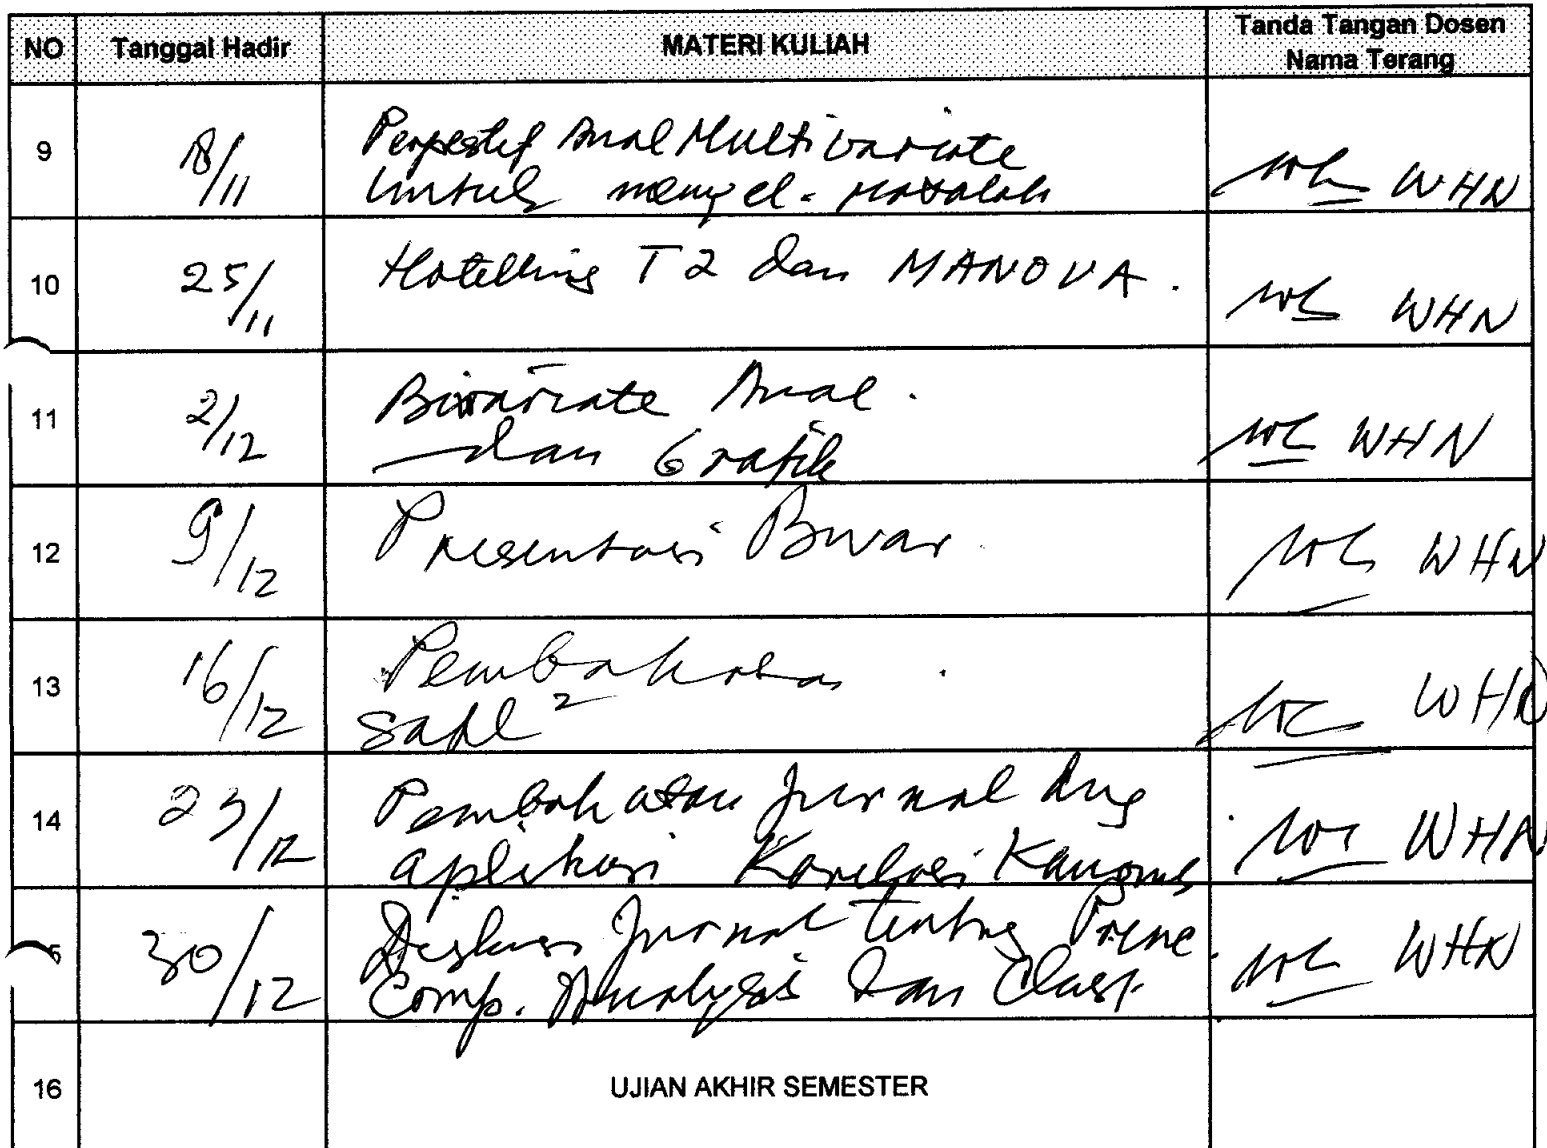 NO Tanggal Hadir MATERI KULIAH Tanda Tangan Dosen
Nama Terang
9 18/11 Perpestif Anal Multivariate
untuk menyel. masalah WHN
10 25/11 Hotelling T2 dan MANOVA. WHN
11 2/12 Bivariate Anal.
dan Grafik WHN
12 9/12 Presentasi Bivar WHN
13 16/12 Pembahasan
soal 2 WHN
14 23/12 Pembahasan Jurnal dng
aplikasi Korelasi Kanonik WHN
30/12 Diskusi Jurnal tentng Princ.
Comp. Analysis dan Clust. WHN
16 UJIAN AKHIR SEMESTER